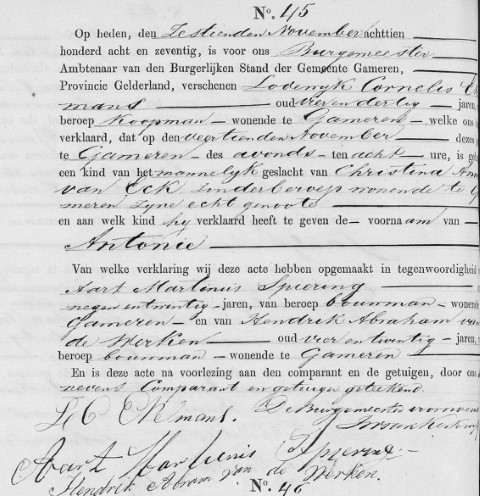 No. 45
Op heden, den Zestienden November achttien
honderd acht en zeventig, is voor ons Burgemeester
Ambtenaar van den Burgerlijken Stand der Gemeente Gameren,
Provincie Gelderland, verschenen Lodewyk Cornelis
mans oud vier en dertig jaren,
beroep Koopman wonende te Gameren welke ons
verklaard, dat op den veertienden November dezes
te Gameren des avonds ten acht ure, is
een kind van het mannelyk geslacht van Christina
van Eck zonder beroep wonende te
meren zyne echtgenoote
en aan welk kind hy verklaard heeft te geven de voornaam van
Antonie
Van welke verklaring wij deze acte hebben opgemaakt in tegenwoordigheid
Aart Martinus Spiering
negen en twintig jaren, van beroep bouwman wonende
Gameren en van Hendrik Abraham van
de Werken oud vier en twintig jaren,
beroep bouwman wonende te Gameren
En is deze acte na voorlezing aan den comparant en de getuigen, door ons
nevens Comparant en getuigen geteekend.
De Burgemeester voornoemd
Aart Martinus Spiering
Hendrik Abram van de Werken.
No. 46